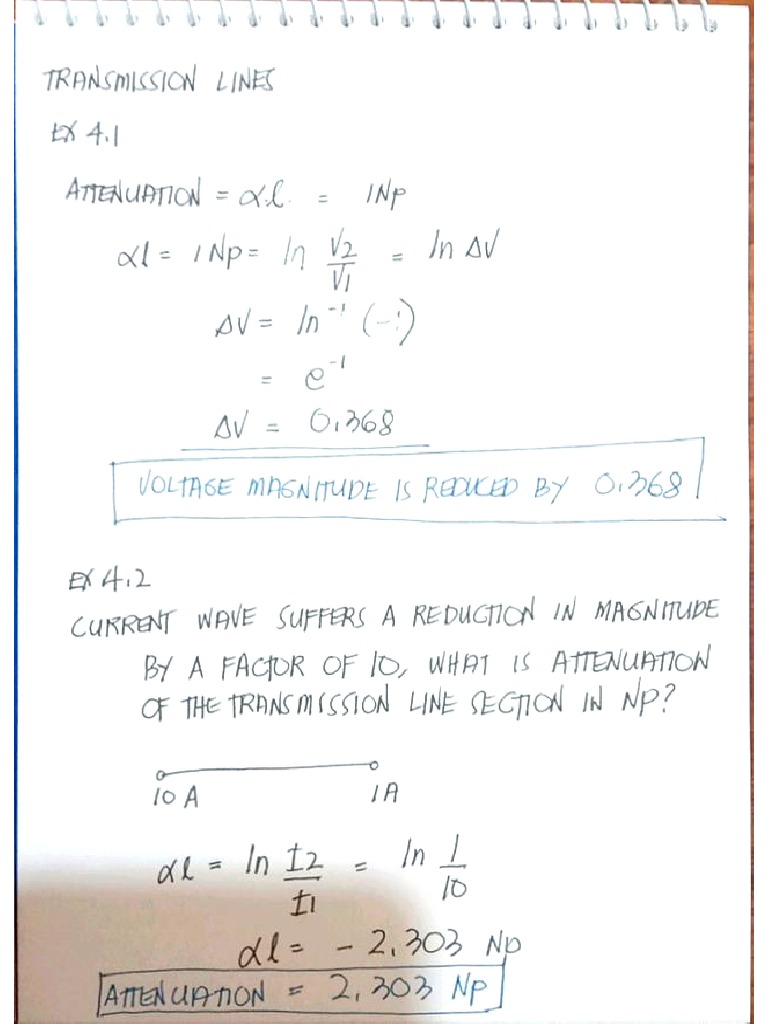 TRANSMISSION LINES
EX 4.1
ATTENUATION = αl = 1Np
αl = 1Np = ln V2/V1 = ln ΔV
ΔV = ln⁻¹ (-1)
= e⁻¹
ΔV = 0.368
VOLTAGE MAGNITUDE IS REDUCED BY 0.368
EX 4.2
CURRENT WAVE SUFFERS A REDUCTION IN MAGNITUDE
BY A FACTOR OF 10, WHAT IS ATTENUATION
OF THE TRANSMISSION LINE SECTION IN Np?
10 A 1A
αl = ln I2/I1 = ln 1/10
αl = - 2.303 Np
ATTENUATION = 2.303 Np